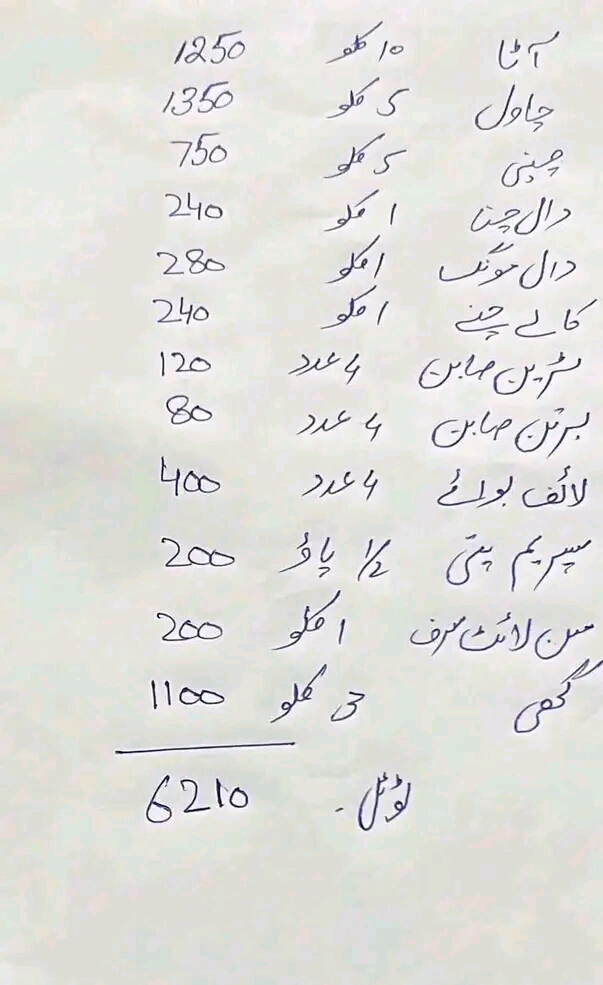 آٹا 10 کلو 1250
چاول 5 کلو 1350
چینی 5 کلو 750
دال چنا 1 کلو 240
دال مونگ 1 کلو 280
کالے چنے 1 کلو 240
صابن 4 عدد 120
برتن صابن 4 عدد 80
لائف بوائے 4 عدد 400
سپریم پتی 1/2 پاؤ 200
سن لائٹ سرف 1 کلو 200
گھی کلو 1100
ٹوٹل ۔ 6210